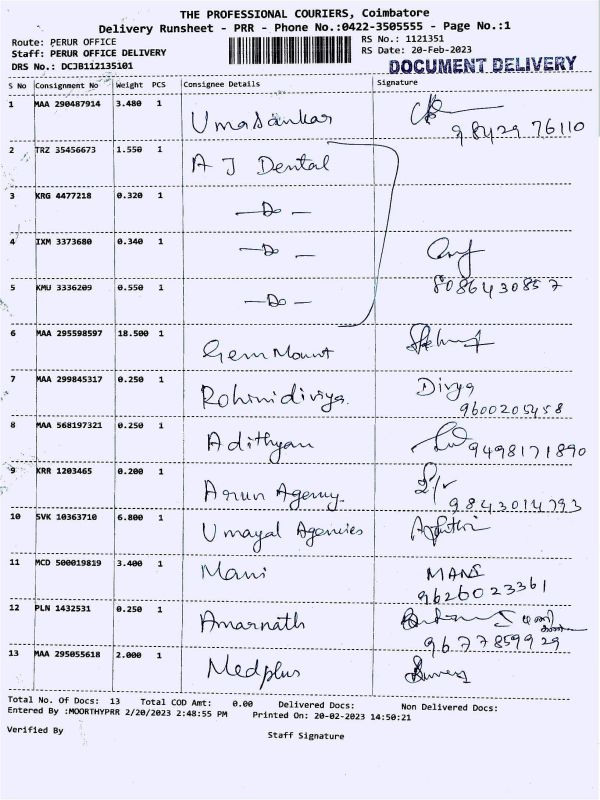 THE PROFESSIONAL COURIERS, Coimbatore
Delivery Runsheet - PRR - Phone No.:0422-3505555 - Page No.:1
Route: PERUR OFFICE RS No.: 1121351
Staff: PERUR OFFICE DELIVERY RS Date: 20-Feb-2023
DRS No.: DCJB112135101 DOCUMENT DELIVERY
S No Consignment No Weight PCS Consignee Details Signature
1 MAA 290487914 3.480 1 Umasankar
98429 76110
2 TRZ 35456673 1.550 1 A J Dental
3 KRG 4477218 0.320 1 —Do—
4 IXM 3373680 0.340 1 —Do—
5 KMU 3336209 0.550 1 —Do— 8086430857
6 MAA 295598597 18.500 1 Gem Mount
7 MAA 299845317 0.250 1 Rohinidivya. Divya
9600205458
8 MAA 568197321 0.250 1 Adithyan 9498171890
9 KRR 1203465 0.200 1 Arun Agency.
9843014793
10 SVK 10363710 6.800 1 Umayal Agencies
11 MCD 500019819 3.400 1 Mani MANI
9626023361
12 PLN 1432531 0.250 1 Amarnath
9677859929
13 MAA 295055618 2.000 1 Medplus
Total No. Of Docs: 13 Total COD Amt: 0.00 Delivered Docs: Non Delivered Docs:
Entered By :MOORTHYPRR 2/20/2023 2:48:55 PM Printed On: 20-02-2023 14:50:21
Verified By Staff Signature